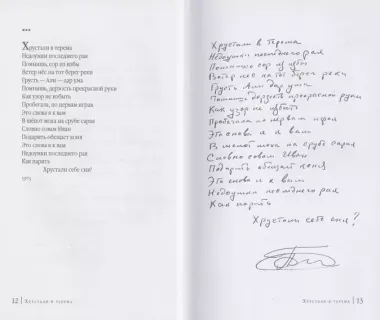 ***
Хрустали в терема
Недоумки последнего рая
Помнишь, сор из избы
Ветер нёс на тот берег реки
Грусть — Али — дар ума
Помнишь, дерзость прекрасной руки
Как узор не избыть
Пробегала, по нервам играя
Это снова я к вам
В шепот меха на срубе сарая
Словно совам Иван
Подарить обещает коня
Это снова я к вам
Недоумки последнего рая
Как парить
Хрустали себе сня?
1975
12 | Хрустали в терема
Хрустали в терема
Недоумки последнего рая
Помнишь сор из избы
Ветер нес на тот берег реки
Грусть Али дар ума
Помнишь дерзость прекрасной руки
Как узор не избыть
Пробегала по нервам играя
Это снова я к вам
В шепот меха на срубе сарая
Словно совам Иван
Подарить обещает коня
Это снова я к вам
Недоумки последнего рая
Как парить
Хрустали себе сня?
Хрустали в терема | 13